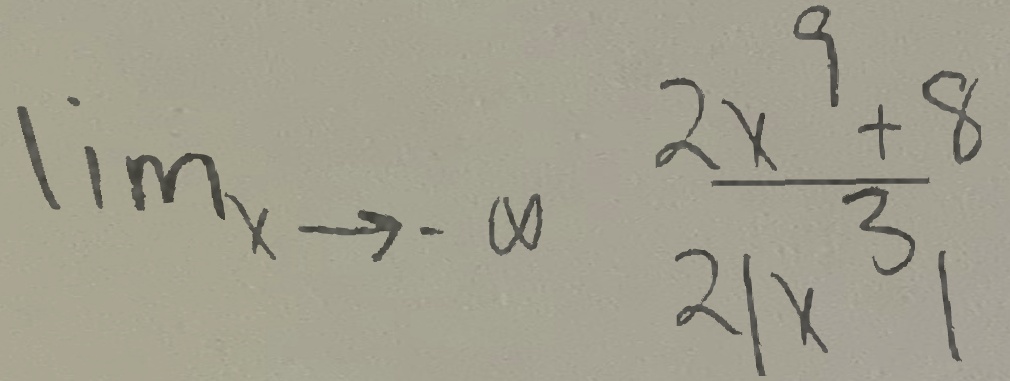 lim x → - ∞ (2x^9 + 8) / (2|x^3|)